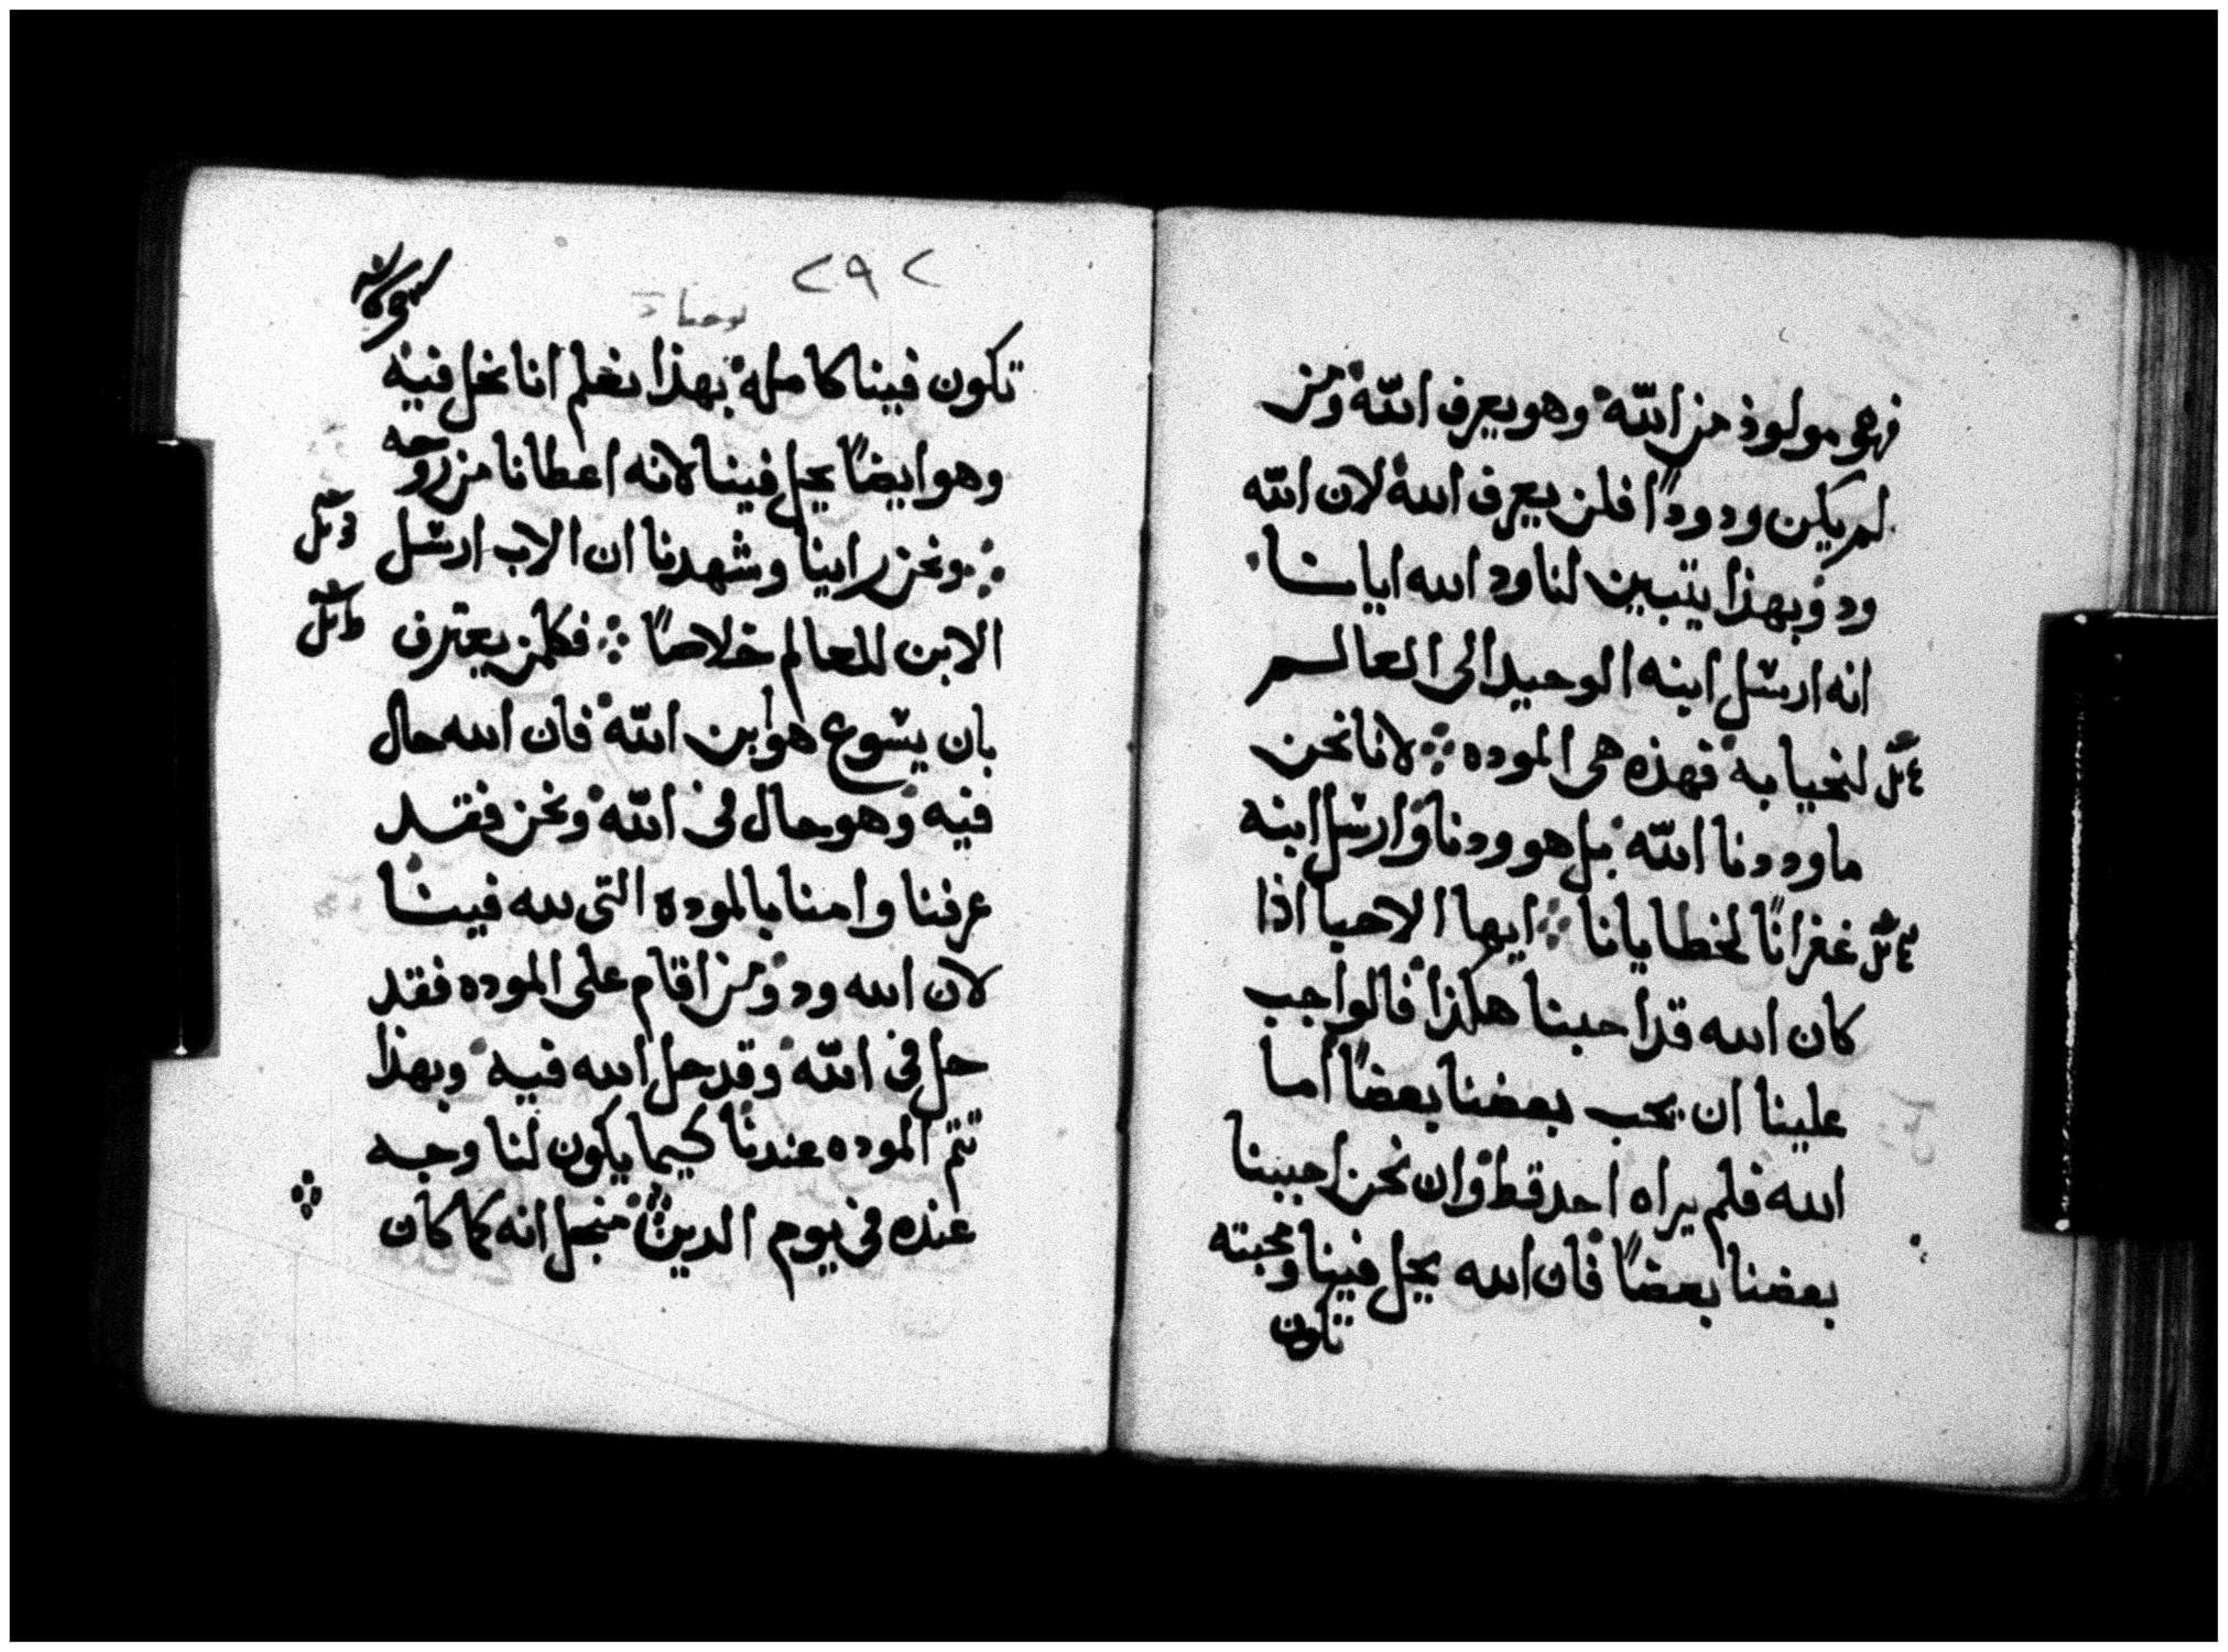 فهو مولود من الله وهو يعرف الله ومن
لم يكن ودودًا فلن يعرف الله لان الله
ود وبهذا يتبين لنا ود الله ايانا
انه ارسل ابنه الوحيد الى العالم
لنحيا به فهذه هى الموده لانا نحن
ما وددنا الله بل هو ودنا وارسل ابنه
غفرانًا لخطايانا ايها الاحبا اذا
كان الله قد احبنا هكذا فالواجب
علينا ان يحب بعضنا بعضًا اما
الله فلم يراه احد قط وان نحن احببنا
بعضنا بعضًا فان الله يحل فينا ومحبته
تكون
٢٩٢
يوحنا
تكون فينا كامله بهذا نعلم انا نحل فيه
وهو ايضًا يحل فينا لانه اعطانا من روحه
ونحن راينا وشهدنا ان الاب ارسل
الابن للعالم خلاصًا فكلمن يعترف
بان يسوع هو ابن الله فان الله حال
فيه وهو حال فى الله ونحن فقد
عرفنا وامنا بالموده التى لله فينا
لان الله ود ومن اقام على الموده فقد
حل فى الله وقد حل الله فيه وبهذا
تتم الموده عندنا كيما يكون لنا وجه
عنده فى يوم الدين منجل انه كما كان